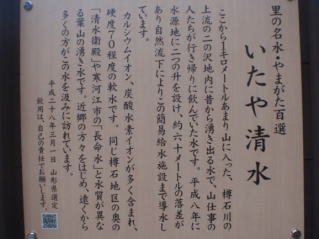 里の名水・やまがた百選
いたや清水
ここから1キロメートルあまり山に入った、樽石川の
上流の二の沢地内に昔から湧き出る水で、山仕事の
人たちが行き帰りに飲んでいた水です。平成八年に
水源地に二つの升を設け、約六十メートルの落差が
あり自然流下によりこの簡易給水施設まで導水し
ています。
カルシウムイオン、炭酸水素イオンが多く含まれ、
硬度70程度の軟水です。同じ樽石地区の奥の
「清水衛殿」や寒河江市の「長命水」と水質が異な
る葉山の湧き水です。近郷の方々をはじめ、遠くから
多くの方がこの水を汲みに訪れています。
平成二十八年三月一日 山形県選定
飲用は、自己の責任でお願いします。